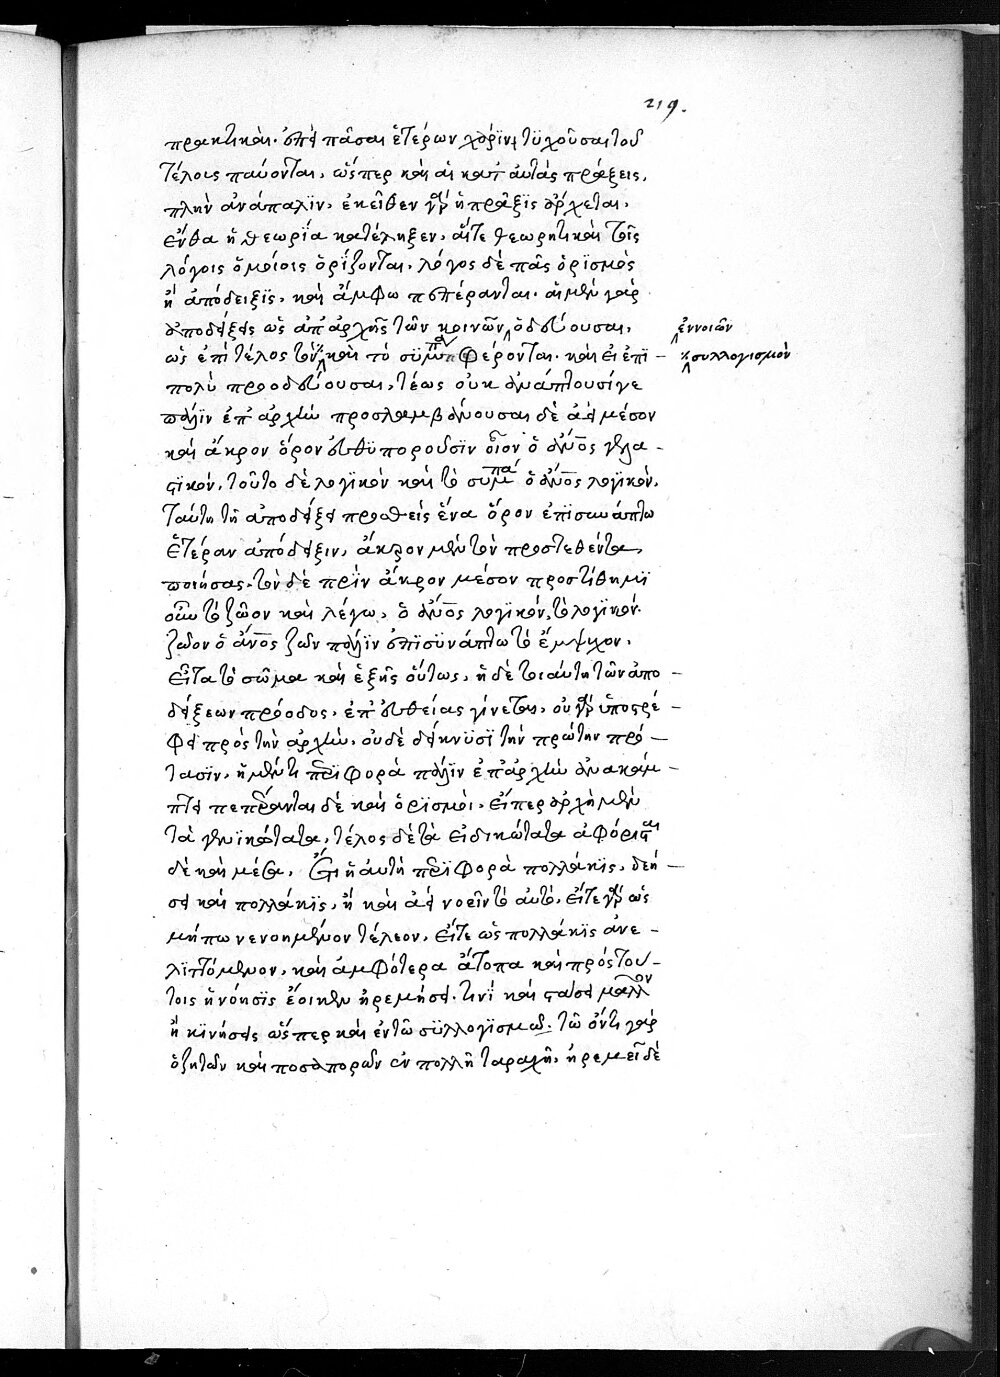 219.
πρακτικαὶ. ἐπεὶ πᾶσαι ἑτέρων χάριν, τυχοῦσαι τοῦ
τέλους παύονται, ὥσπερ καὶ αἱ κατ' αὐτὰς πράξεις,
πλὴν ἀνάπαλϊν, ἐκεῖθεν γὰρ ἡ πρᾶξϊς ἄρχεται,
ἔνθα ἡ θεωρία κατέληξεν, αἵτε θεωρητικαὶ τοῖς
λόγοις ὁμοίοις ὁρίζονται, λόγος δὲ πᾶς ὁρισμὸς
ἢ ἀπόδειξϊς, καὶ ἄμφω πεπέρανται. αἱ μὲν γὰρ
ἀποδείξεις ὡς ἀπ' ἀρχῆς τῶν κοινῶν ὁδεύουσαι, ἐννοιῶν
ὡς ἐπὶ τέλος τὸν καὶ τὸ συμπ φέρονται. καὶ εἰ ἐπϊ- κ συλλογισμὸν
πολὺ προοδεύουσαι, τέως οὐκ ἀνάπτουσί γε
πάλϊν ἐπ' ἀρχὴν προσλαμβάνουσαι δὲ ἀεὶ μέσον
καὶ ἄκρον ὅρον εὐθϋποροῦσϊν οἷον ὁ ἄνος γελα-
στϊκόν, τοῦτο δὲ λογϊκὸν καὶ τὸ συμπ ὁ ἄνος λογϊκόν,
ταύτη τῆ ἀποδείξει προσθεὶς ἕνα ὅρον ἐπϊσυνάπτω
ἑτέραν ἀπόδειξιν, ἄκρον μὲν τὸν προστεθέντα,
ποιήσας. τὸν δὲ πρὶν ἄκρον μέσον προστίθημϊ
οὖν τὸ ζῶον καὶ λέγω, ὁ ἄνος λογϊκόν, τὸ λογϊκόν
ζῶον ὁ ἄνος ζῶν πάλϊν ἐπϊσϋνάπτω τὸ ἔμψυχον,
εἶτα τὸ σῶμα καὶ ἑξῆς οὕτως, ἡ δὲ τοιαύτη τῶν ἀπο-
δείξεων πρόοδος, ἐπ' εὐθείας γίνεται, οὐ γὰρ ὑποστρέ-
φει πρὸς τὴν ἀρχὴν, οὐδὲ δείκνυσϊ τὴν πρώτην πρό-
τασϊν, ἡ μέντι περϊφορὰ πάλϊν ἐπ' ἀρχὴν ἀνακάμ-
πτει πεπέρανται δὲ καὶ ὁρϊσμοὶ. εἴπερ ἀρχὴ μὲν
τὰ γενϊκώτατα, τέλος δὲ τὰ εἰδικώτατα ἀφόρισται
δὲ καὶ μέσα, ἔτι ἡ αὐτὴ περϊφορὰ πολλάκϊς, δεή-
σει καὶ πολλάκϊς, ἢ καὶ ἀεὶ νοεῖν τὸ αὐτό, εἴτε γὰρ ὡς
μήπω νενοημένον τέλεον, εἴτε ὡς πολλάκϊς ἀνε-
λϊττόμενον, καὶ ἀμφότερα ἄτοπα καὶ πρὸς τού-
τοις ἡ νόησϊς ἔοικεν ἠρεμήσει τινὶ καὶ στάσει μᾶλλον
ἢ κϊνήσει ὥσπερ καὶ ἐν τῶ σϋλλογϊσμῶ. τῶ ὄντι γὰρ
ὁ ζητῶν καὶ ποσαπορῶν ἐν πολλῆ ταραχῆ, ἠρεμεῖ δὲ